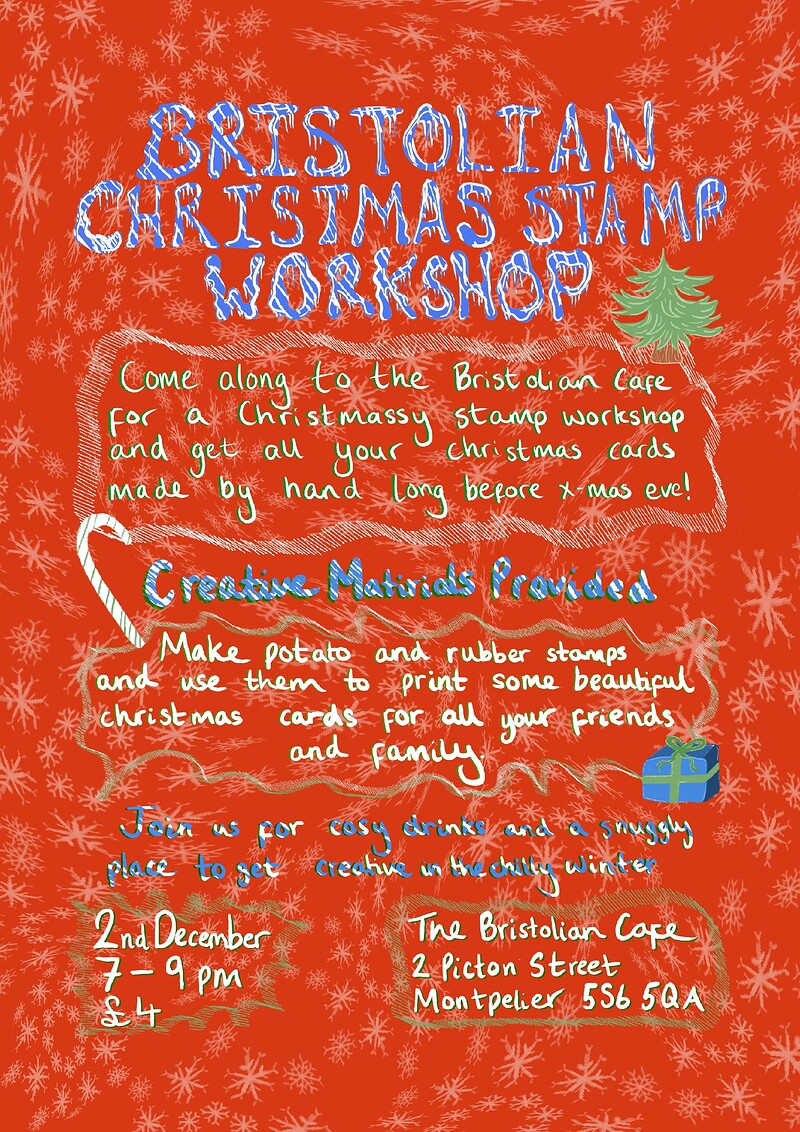 BRISTOLIAN
CHRISTMAS STAMP
WORKSHOP
Come along to the Bristolian Cafe
for a Christmassy stamp workshop
and get all your christmas cards
made by hand long before x-mas eve!
Creative Matirials Provided
Make potato and rubber stamps
and use them to print some beautiful
christmas cards for all your friends
and family
Join us for cosy drinks and a snuggly
place to get creative in the chilly winter
2nd December
7 - 9 pm
£4
The Bristolian Cafe
2 Picton Street
Montpelier 5S6 5QA